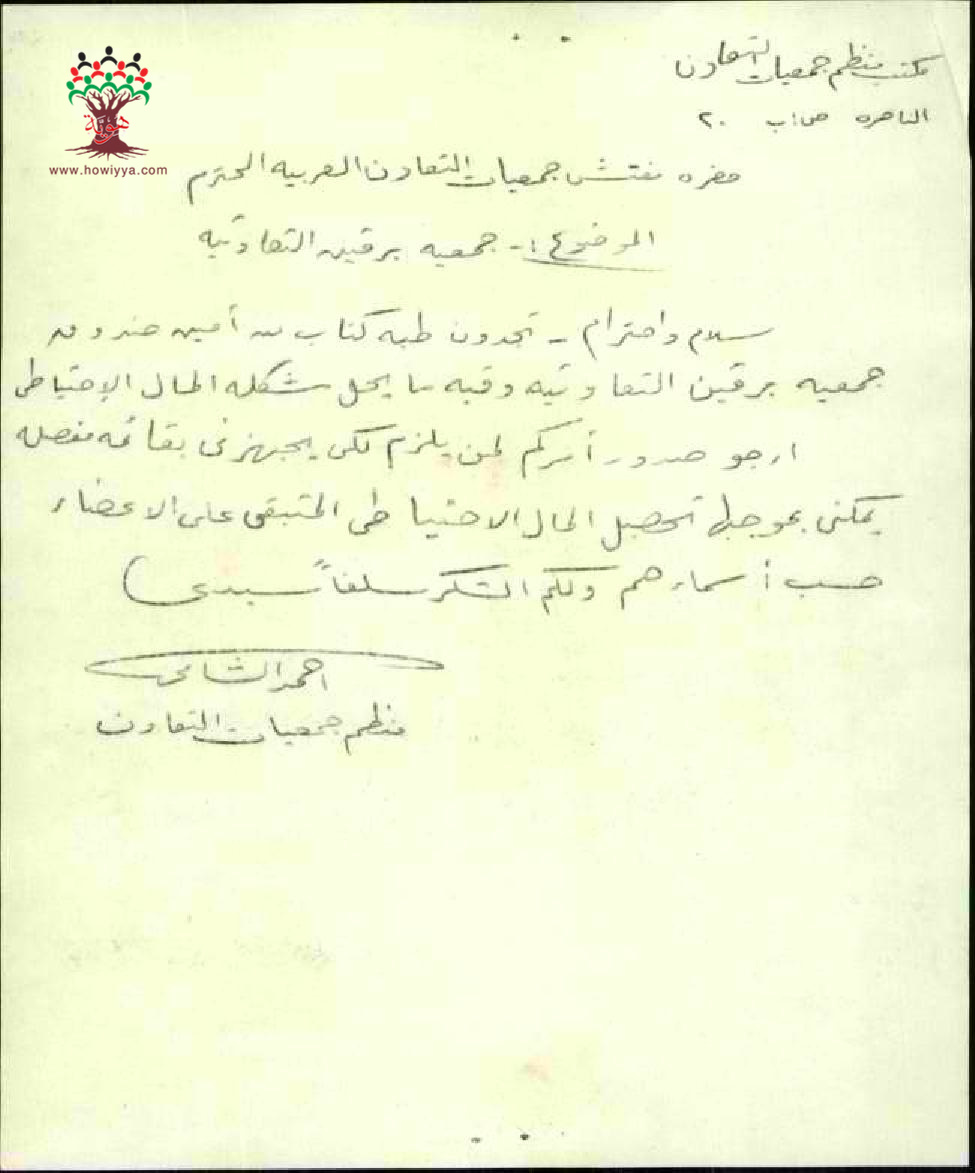 مكتب منظم جمعيات التعاون
الناصره ص.ب ٢٠
هويّة
www.howiyya.com
حضرة مفتش جمعيات التعاون العربيه المحترم
الموضوع :- جمعيه برقين التعاونيه
سلام واحترام - تجدون طيه كتاب من أمين صندوق
جمعيه برقين التعاونيه وفيه ما يحل مشكله المال الإحتياطي
ارجو صدور أمركم لمن يلزم لكي يجهزني بقائمه مفصله
يمكنني بموجبها تحصيل المال الاحتياطي المتبقي على الاعضاء
حسب أسماءهم ولكم الشكر سلفاً سيدي
احمد
منظم جمعيات التعاون